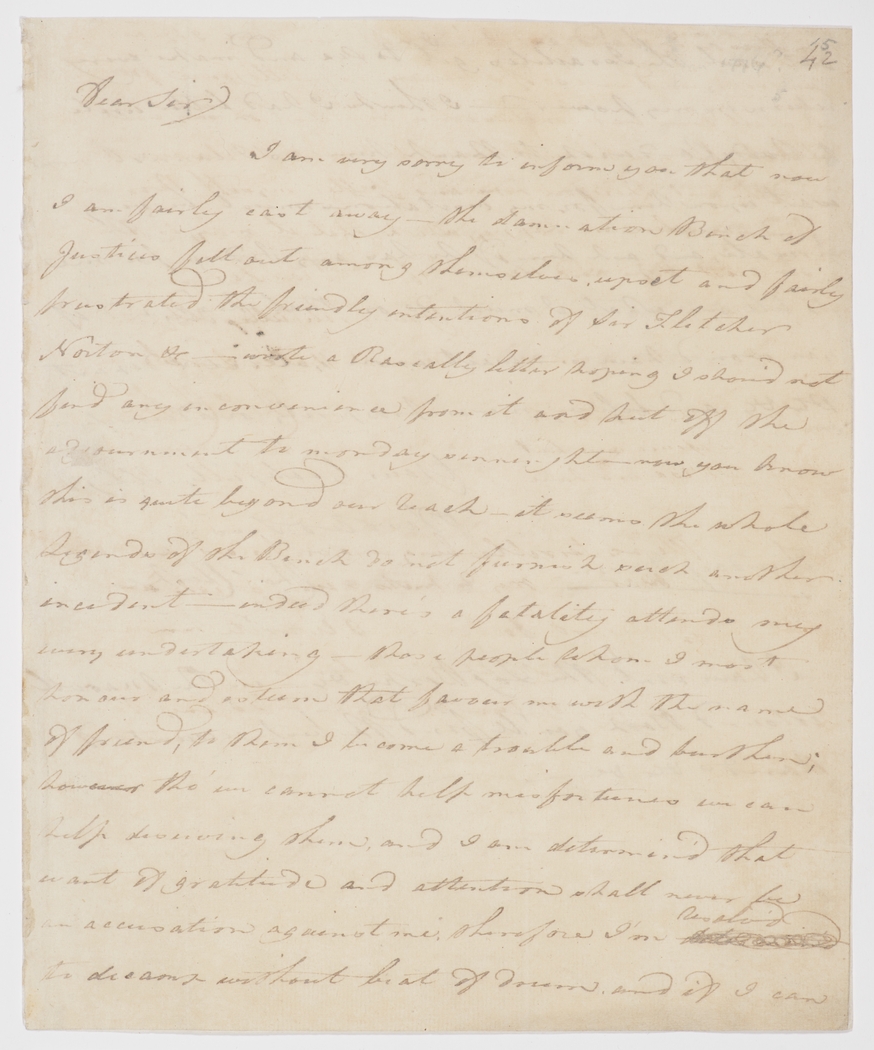 45
2
Dear Sir,
I am very sorry to inform you that now
I am fairly cast away — the damnation Bench of
Justices fell out among themselves, upset and fairly
frustrated the friendly intentions of Sir Fletcher
Norton &c — wrote a Rascally letter hoping I should not
find any inconvenience from it and put off the
adjournment to monday sennight — now you know
this is quite beyond our reach — it seems the whole
Legends of the Bench do not furnish such another
incident — indeed there's a fatality attends my
every undertaking — those people whom I most
honour and esteem that favour me with the name
of friend, to them I become a trouble and burthen;
however tho' we cannot help misfortunes we can
help deserving them, and I am determin'd that
want of gratitude and attention shall never be
an accusation against me, therefore I'm resolv'd
to decamp without beat of drum, and if I can